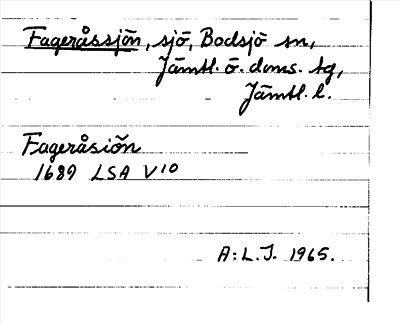 Fageråssjön, sjö, Bodsjö sn,
Jämtl. ö. doms. tg,
Jämtl. l.
Fageråsiön
1689 LSA V10
A:L.J. 1965.